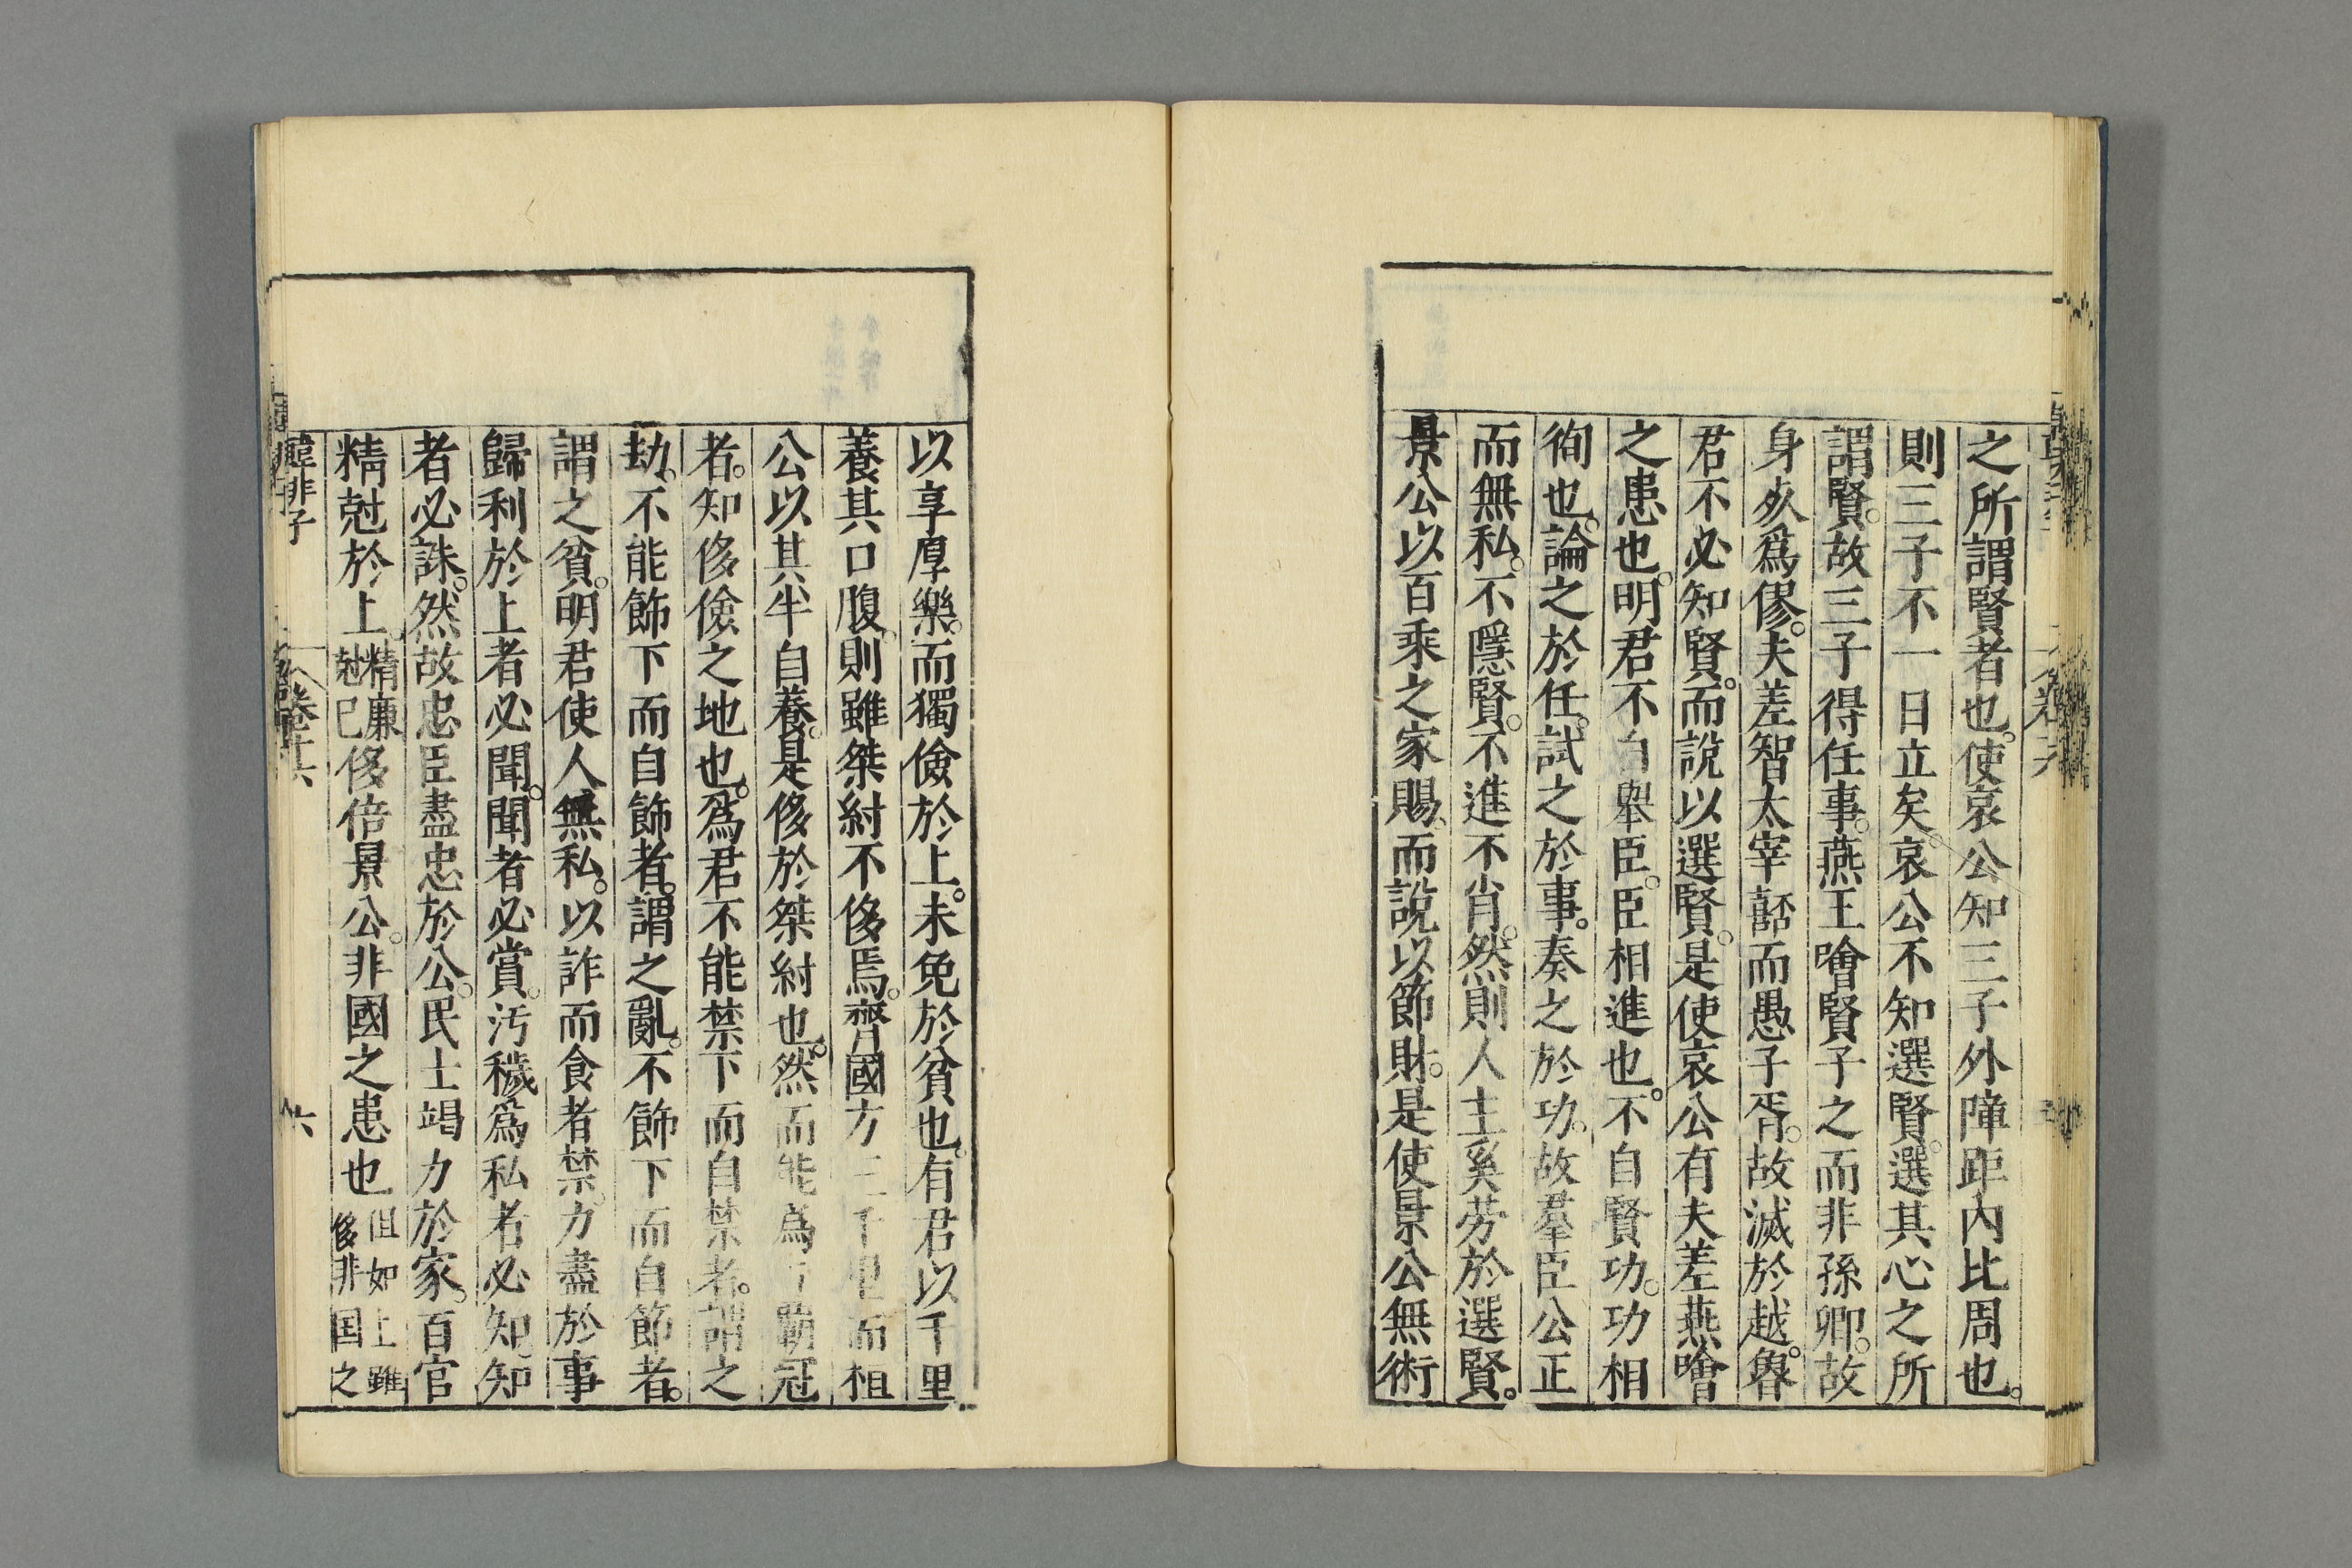 之所謂賢者也。使哀公知三子外障距內比周也。
則三子不一日立矣。哀公不知選賢。選其心之所
謂賢。故三子得任事。燕王噲賢子之而非孫卿。故
身死爲僇。夫差智太宰嚭而愚子胥。故滅於越。魯
君不必知賢。而說以選賢。是使哀公有夫差燕噲
之患也。明君不自舉臣。臣相進也。不自賢功。功相
徇也。論之於任。試之於事。奏之於功。故羣臣公正
而無私。不隱賢。不進不肖。然則人主奚勞於選賢。
景公以百乘之家賜、而說以節財。是使景公無術
以享厚樂。而獨儉於上。未免於貧也。有君以千里
養其口腹。則雖桀紂不侈焉。齊國方三千里而桓
公以其半自養。是侈於桀紂也。然而能爲五霸冠
者。知侈儉之地也。爲君不能禁下而自禁者。謂之
劫、不能飾下而自飾者。謂之亂。不飾下而自節者。
謂之貧。明君使人無私。以詐而食者禁。力盡於事
歸利於上者必聞。聞者必賞。汚穢爲私者必知。知
者必誅。然故忠臣盡忠於公。民士竭力於家。百官
精尅於上。精廉尅已侈倍景公。非國之患也但如上雖侈非国之
韓非子 卷十六 六